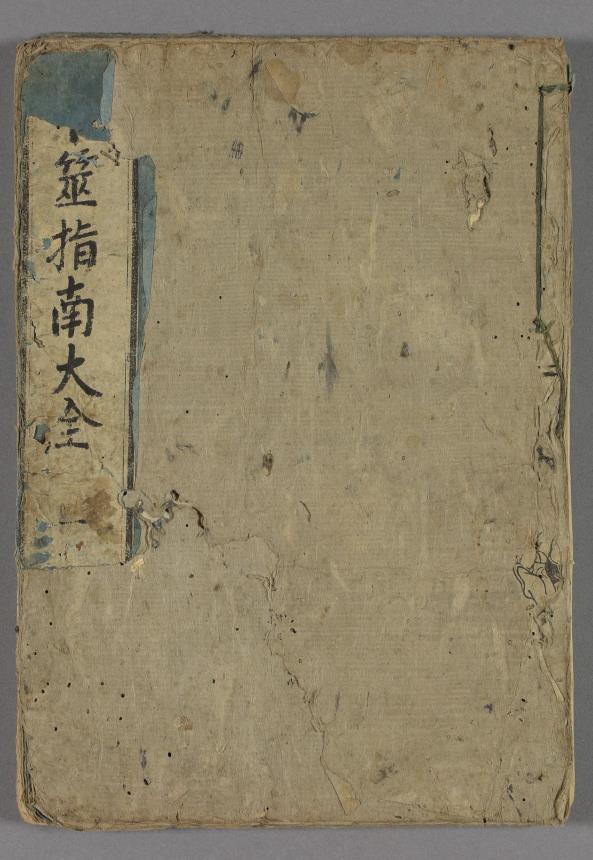 筮指南大全
一